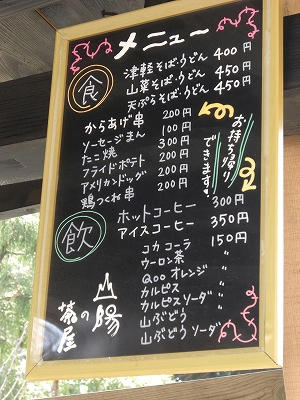 メニュー
食
津軽そば・うどん 400円
山菜そば・うどん 450円
天ぷらそば・うどん 450円
からあげ串 200円
ソーセージまん 100円
たこ焼 300円
フライドポテト 200円
アメリカンドッグ 200円
鴨つくね串 200円
お持ち帰り
できます。
飲
ホットコーヒー 300円
アイスコーヒー 350円
コカコーラ 150円
ウーロン茶 〃
Qooオレンジ 〃
カルピス 〃
カルピスソーダ 〃
山ぶどう 〃
山ぶどうソーダ 〃
山陽の茶屋